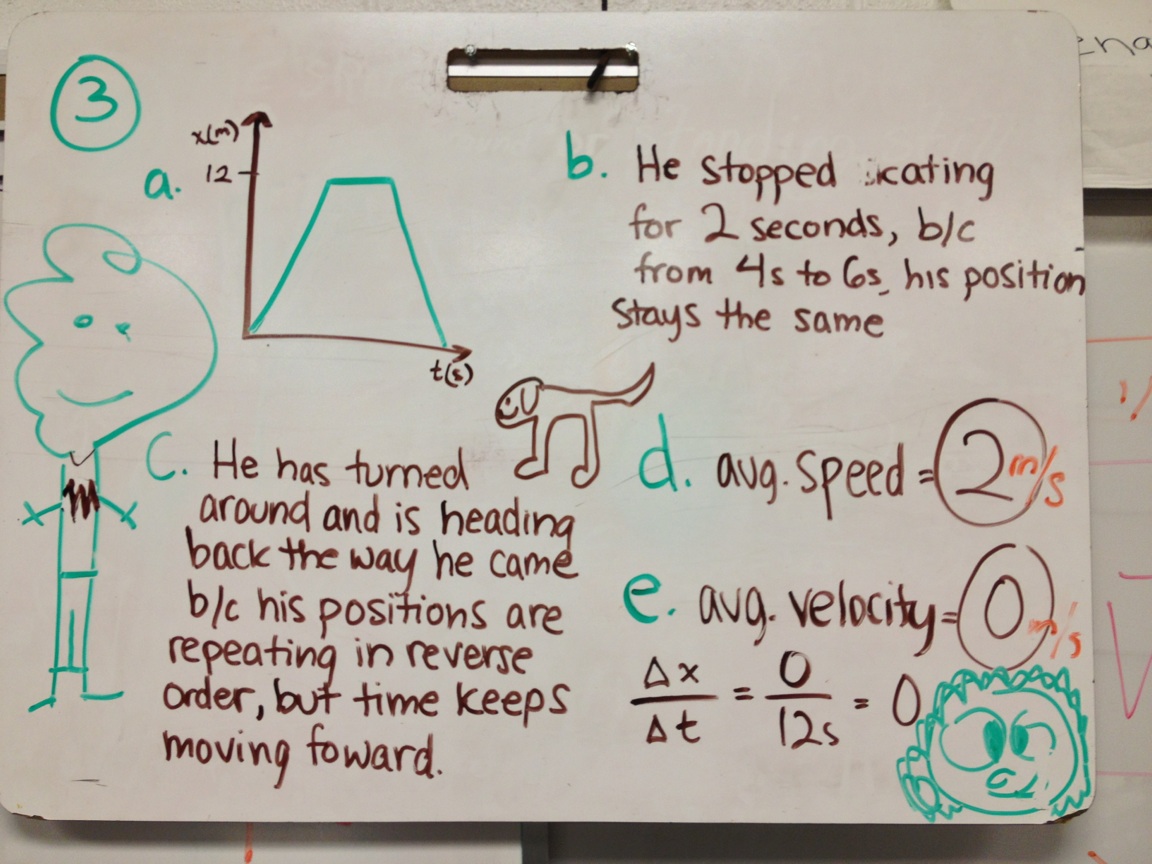 3
a.
x(m)
12
t(s)
b. He stopped skating
for 2 seconds, b/c
from 4s to 6s, his position
stays the same
c. He has turned
around and is heading
back the way he came
b/c his positions are
repeating in reverse
order, but time keeps
moving foward.
d. avg. speed = 2 m/s
e. avg. velocity = 0 m/s
Δx/Δt = 0/12s = 0